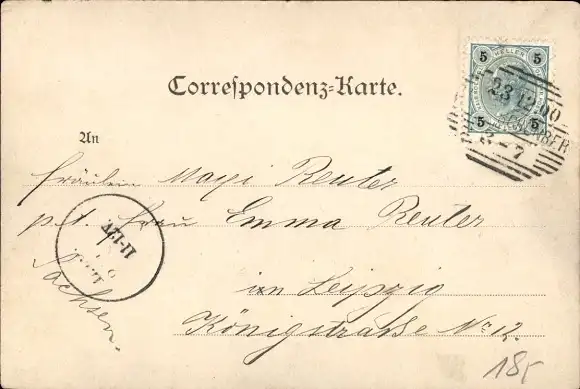 5 HELLER 5
5 5
23.12.00
3-7
Correspondenz-Karte.
An
Fräulein Mayi Reuter
p. t. Frau Emma Reuter
in Leipzig
Königstrasse No 12.
Sachsen.
11-12V.
185